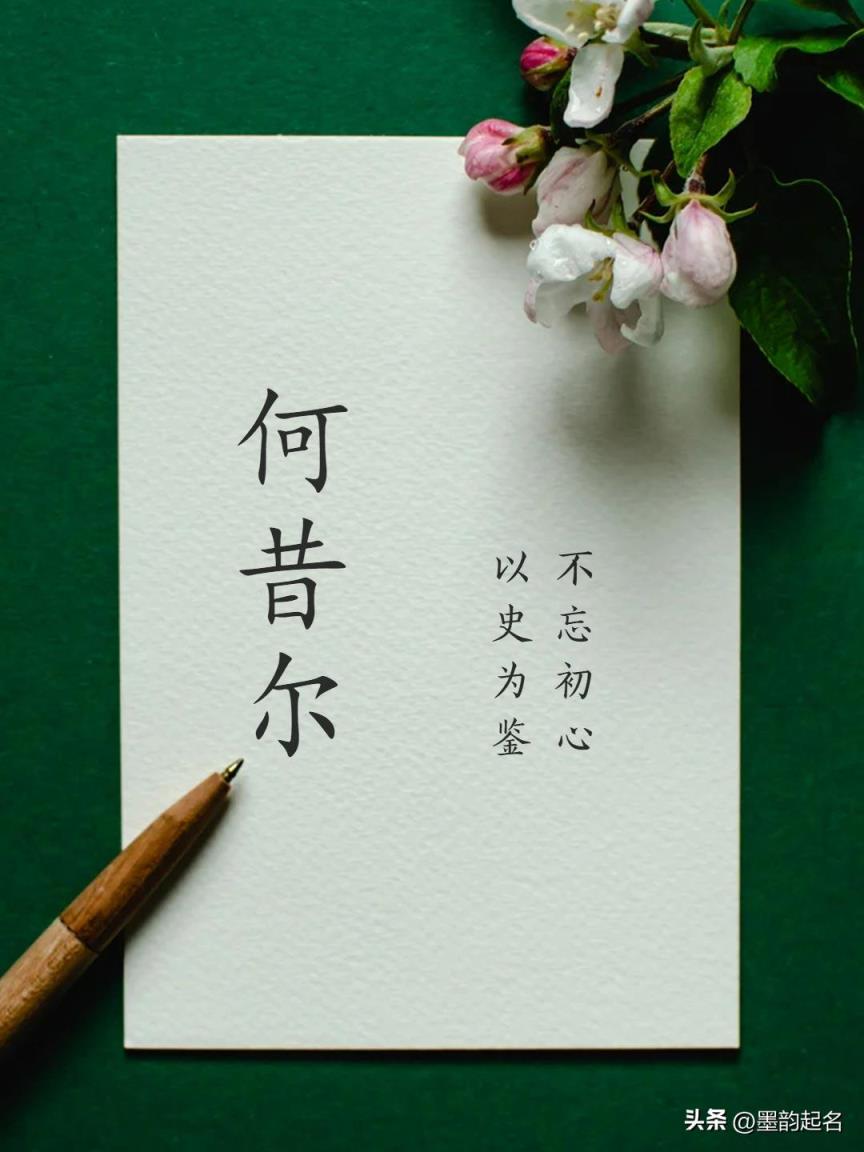 何昔尔
不忘初心
以史为鉴
头条 @墨韵起名